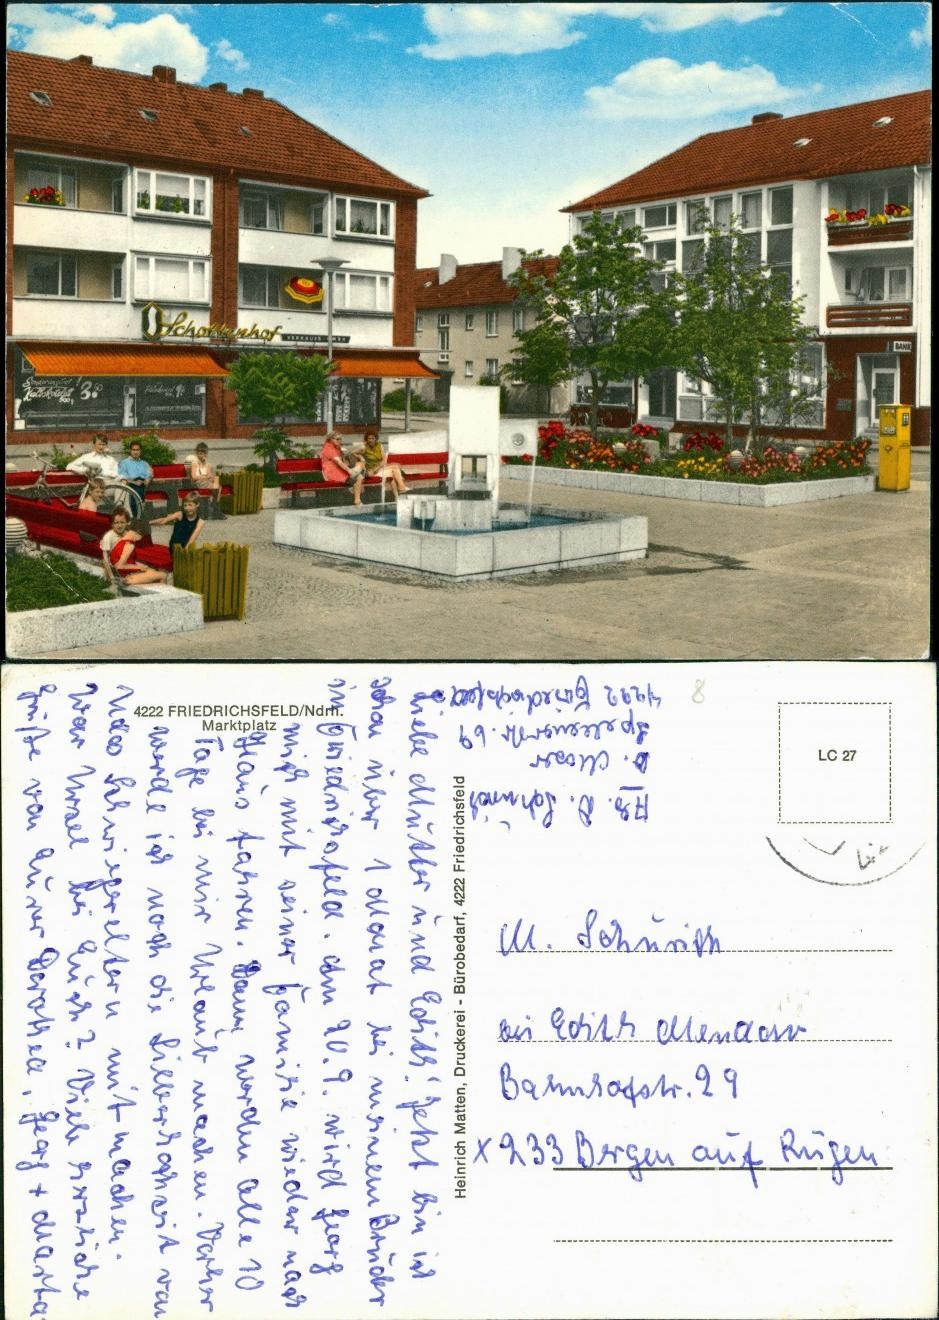 Schottenhof
VERKAUFS
BANK
4222 FRIEDRICHSFELD/Ndrh.
Marktplatz
Heinrich Matten, Druckerei - Bürobedarf, 4222 Friedrichsfeld
LC 27
8
Abs. D. Schurich
b. Moser
69
4222 Friedrichsfeld
M. Schurich
bei Edith
Bahnhofstr. 29
X 233 Bergen auf Rügen
Liebe Mutter und Edith! Jetzt bin ich
schon über 1 Monat bei meinem Bruder
in Friedrichsfeld. Am 20.9. wird Georg
mich mit seiner Familie wieder nach
Haus fahren. Dann werden alle 10
Tage bei mir Urlaub machen. Vorher
werde ich noch die Silberhochzeit von
Schwiegereltern mitmachen.
War Ursel bei Euch? Viele herzliche
Grüße von Eurer Dorothea, Georg + Marta.